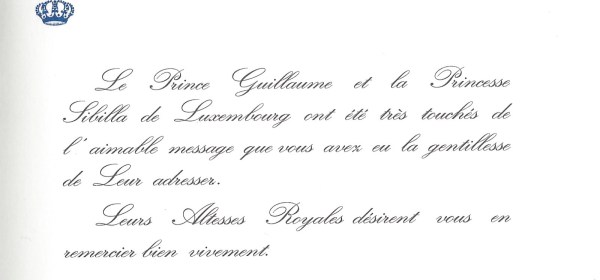 Le Prince Guillaume et la Princesse
Sibilla de Luxembourg ont été très touchés de
l'aimable message que vous avez eu la gentillesse
de Leur adresser.
Leurs Altesses Royales désirent vous en
remercier bien vivement.